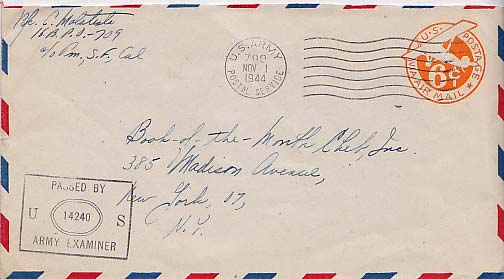 Pfc. C. Malateste
16 B.P.O. - 709
c/o Pm, S.F. Cal
U.S. ARMY
709
NOV 1
1944
POSTAL SERVICE
U.S. POSTAGE
6¢
VIA AIR MAIL
Book-of-the-Month Club, Inc.
385 Madison Avenue,
New York, 17,
N.Y.
PASSED BY
U 14240 S
ARMY EXAMINER